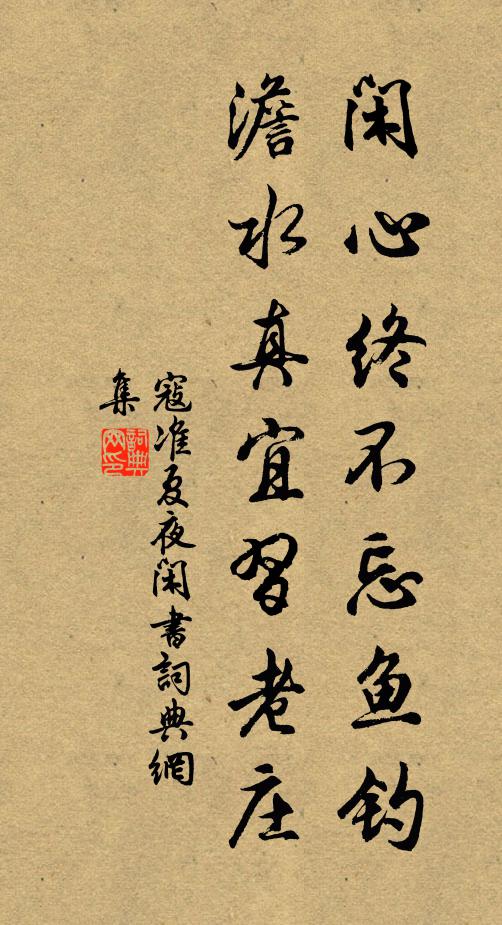 闲心终不忘鱼钓
澹水真宜習老庄
寇准夏夜闲書詞典網
集
詞典网印